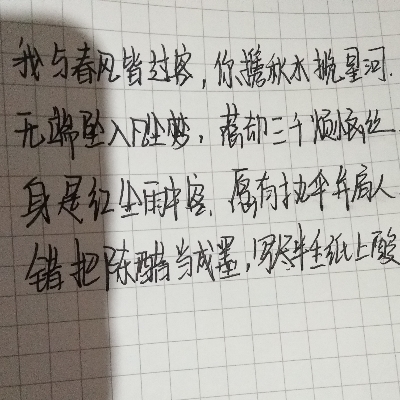 我与春风皆过客,你携秋水揽星河.
无端坠入凡尘梦,落却三千烦恼丝
身是红尘雨中客.愿有执伞并肩人
错把陈醋当成墨,写尽半生纸上酸